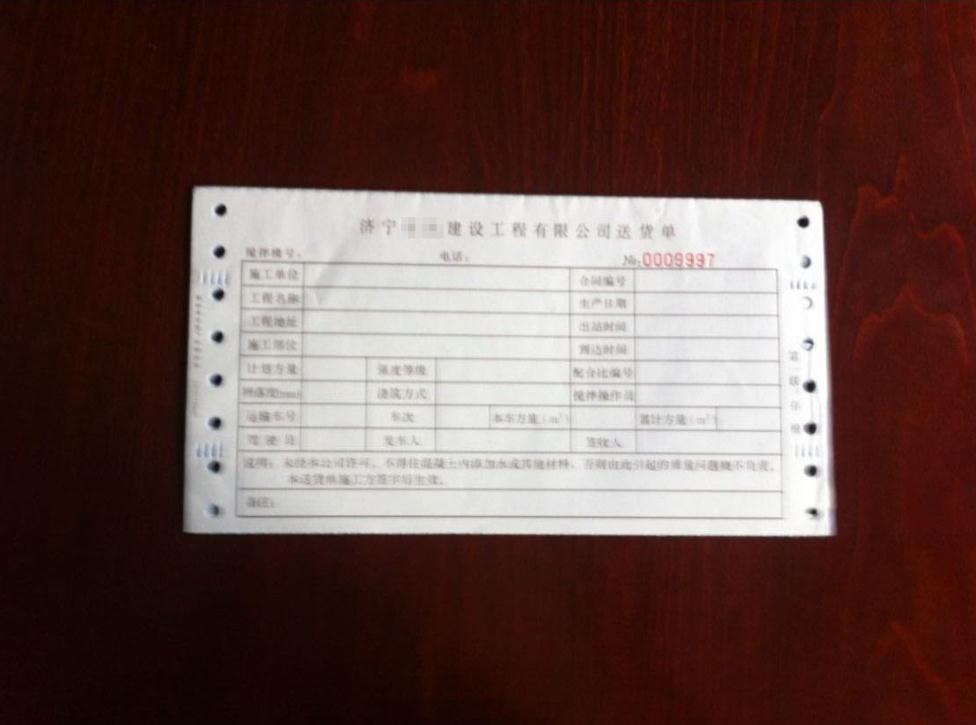 济宁 建设工程有限公司送货单
搅拌楼号： 电话： №:0009997
施工单位 合同编号
工程名称 生产日期
工程地址 出站时间
施工部位 到达时间
计划方量 强度等级 配合比编号
坍落度(mm) 浇筑方式 搅拌操作员
运输车号 车次 本车方量(m³) 累计方量(m³)
驾驶员 发车人 签收人
说明：未经本公司许可，不得往混凝土内添加水或其他材料，否则由此引起的质量问题概不负责。
本送货单施工方签字后生效。
备注：
第一联